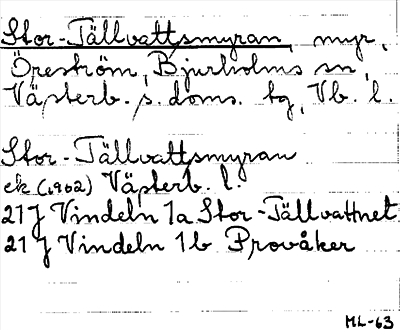 Stor-Tällvattsmyran, myr,
Öreström, Bjurholms sn,
Västerb. s. doms. tg, Vb. l.
Stor-Tällvattsmyran
ek (1962) Västerb. l.
21 J Vindeln 1a Stor-Tällvattnet
21 J Vindeln 1b Provåker
ML-63